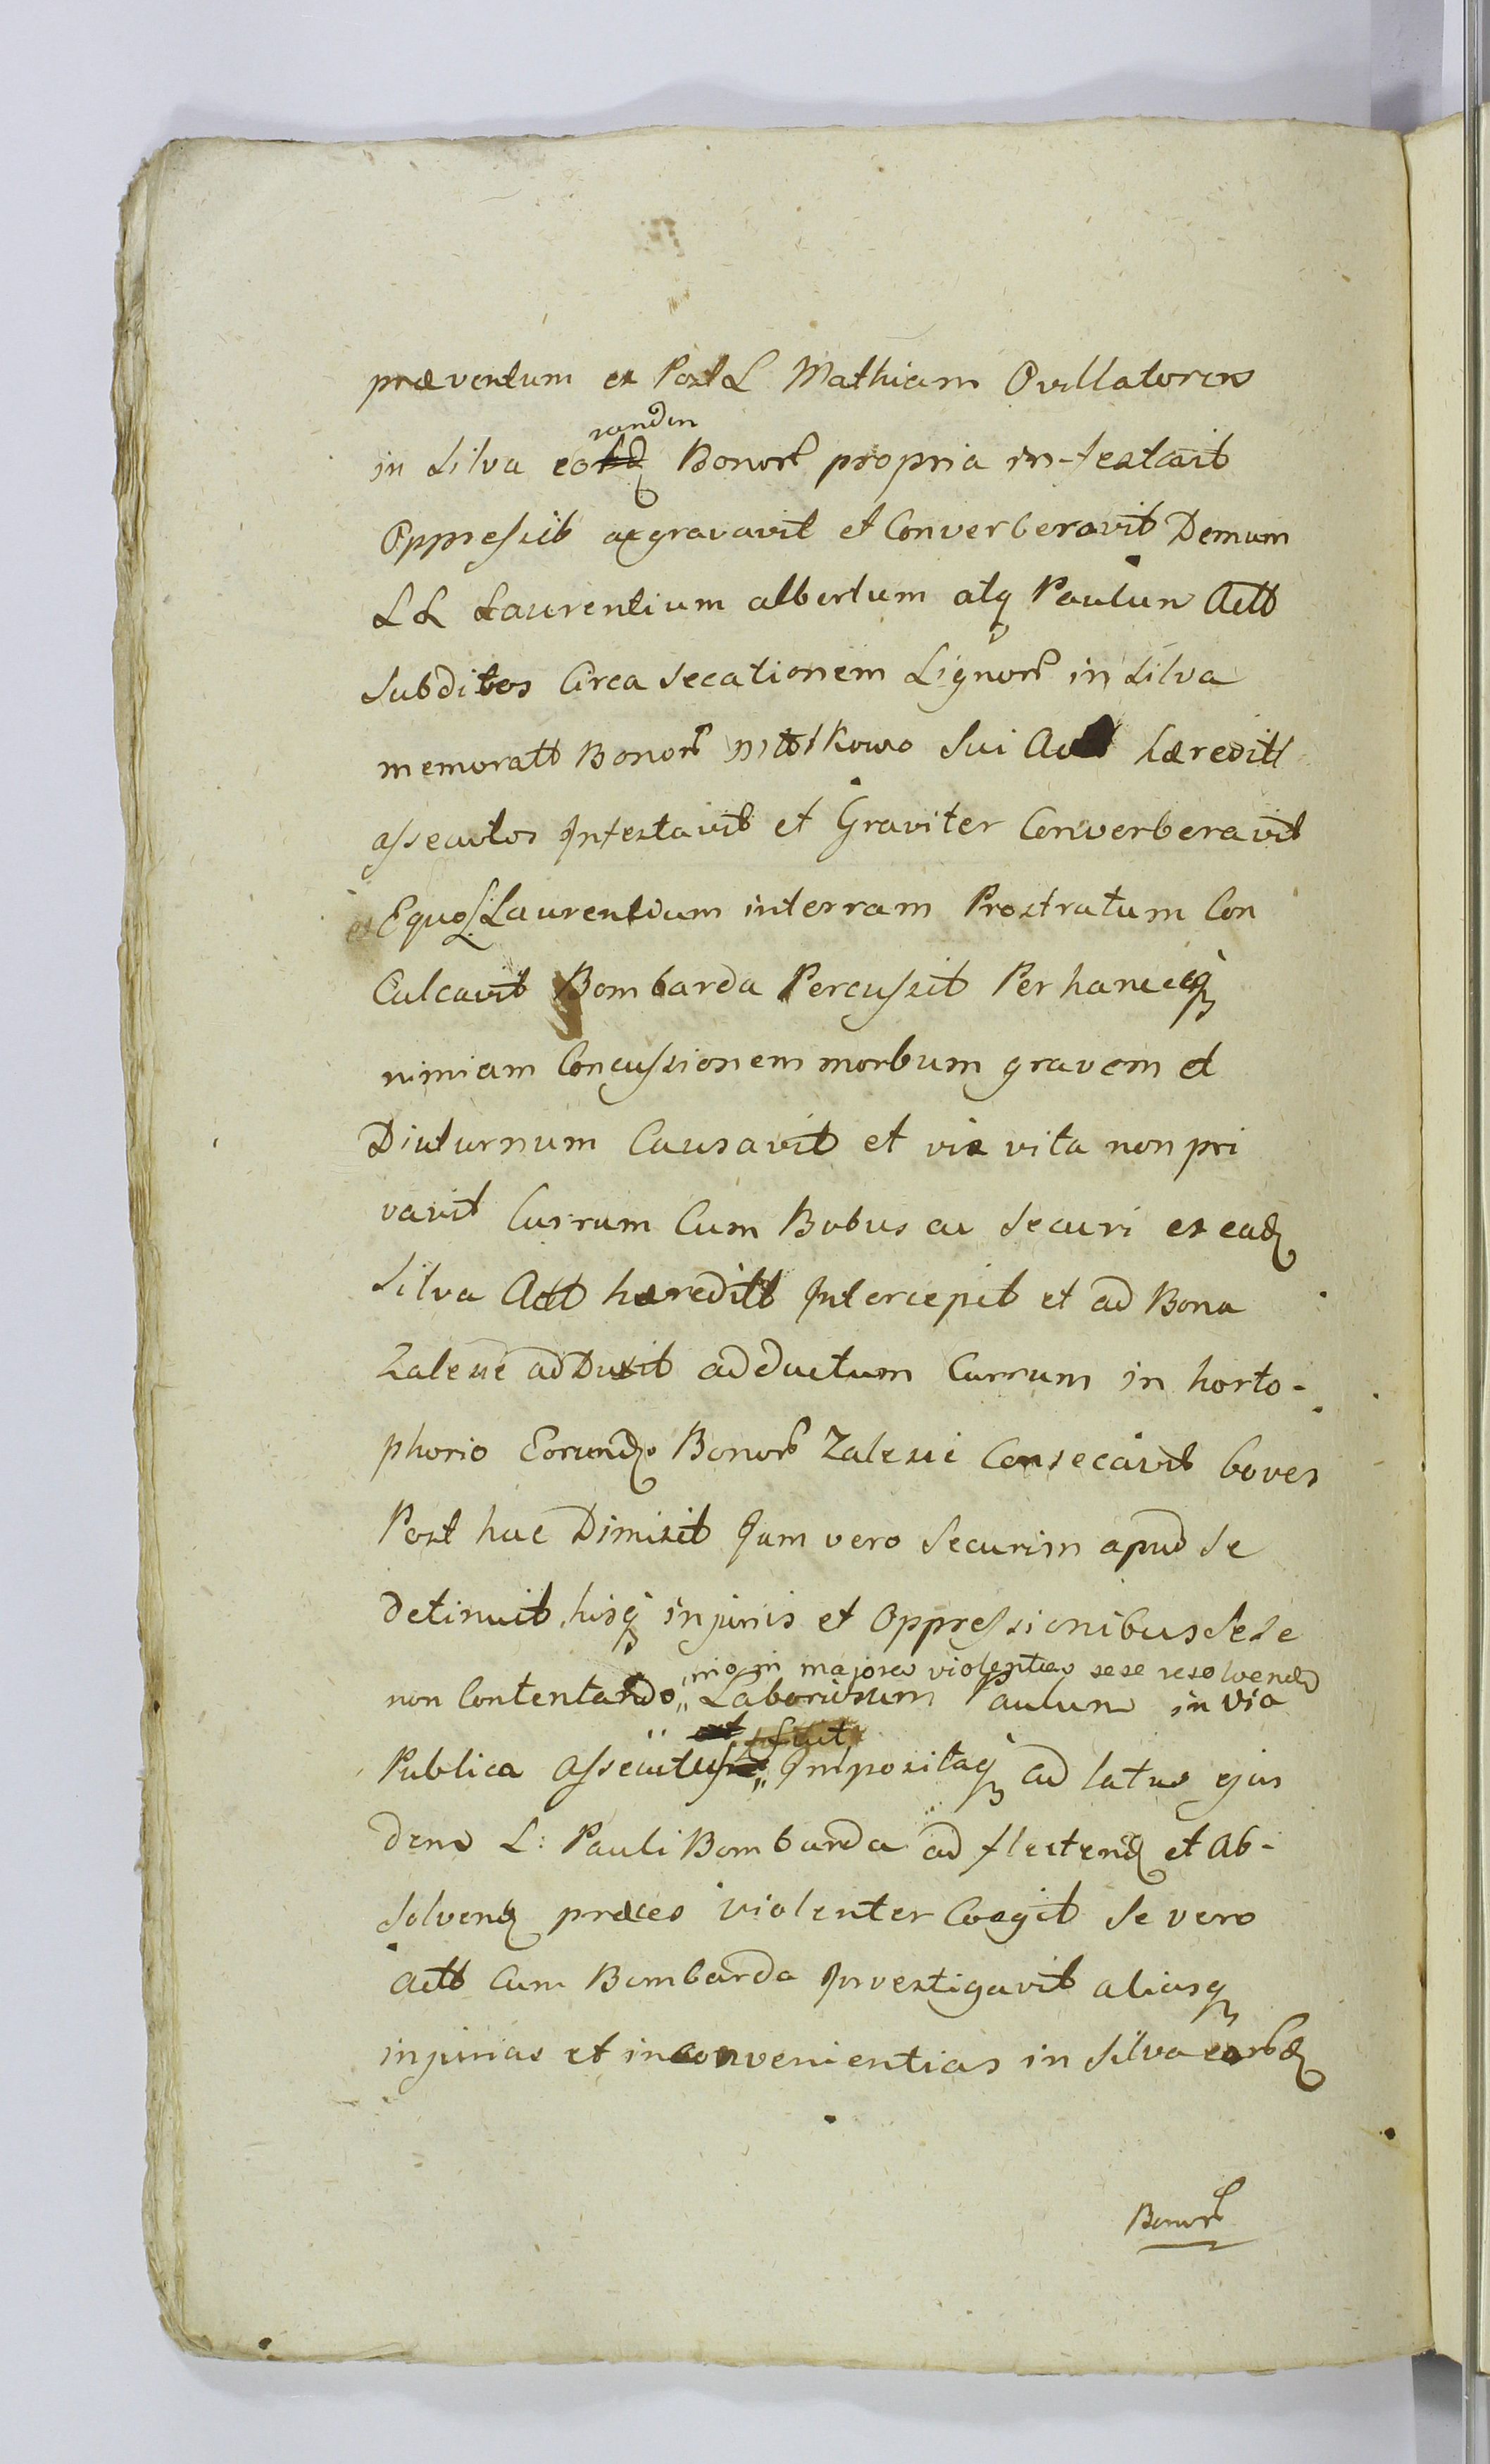 præventum ex Post L Mathiam Ovillatorem
rundem
in Silva eo Bonor propria infestavit
Oppressit aggravavit et Converberavit Demum
LL Laurentium albertum atq Paulum Actt
Subditos Circa Secationem Lignor in Silva
memoratt Bonor Sui hæreditt
assecutos Infestavit et Graviter Converberavit
et Equo L. Laurentium interram Prostratum Con
Culcavit Bombarda Percussit Per hancq
nimiam Concussionem morbum gravem et
Diuturnum Causavit et vix vita non pri
vavit Currum Cum Bobus ac Securi ex eadq
Silva Actt hæreditt Intercepit et ad Bona
Zalesie adDuxit adductum Currum in horto-
phorio Eorundq Bonor Zalesie Consecavit boves
Post hac Dimisit Jam vero Securim apud Se
detinuit, hisq injuriis et Oppressionibus Sese
imo in majores violentias sese resolvendo
non Contentando,, Laboriosum Paulum in via
Publica Assecutus,, Impositaq ad latus ejus
dem L: Pauli Bombarda ad flectend et Ab-
Solvend præces violenter Coegit Se vero
Actt Cum Bombarda Investigavit aliasq
injurias et inconvenientias in Silva eorund
Bonor